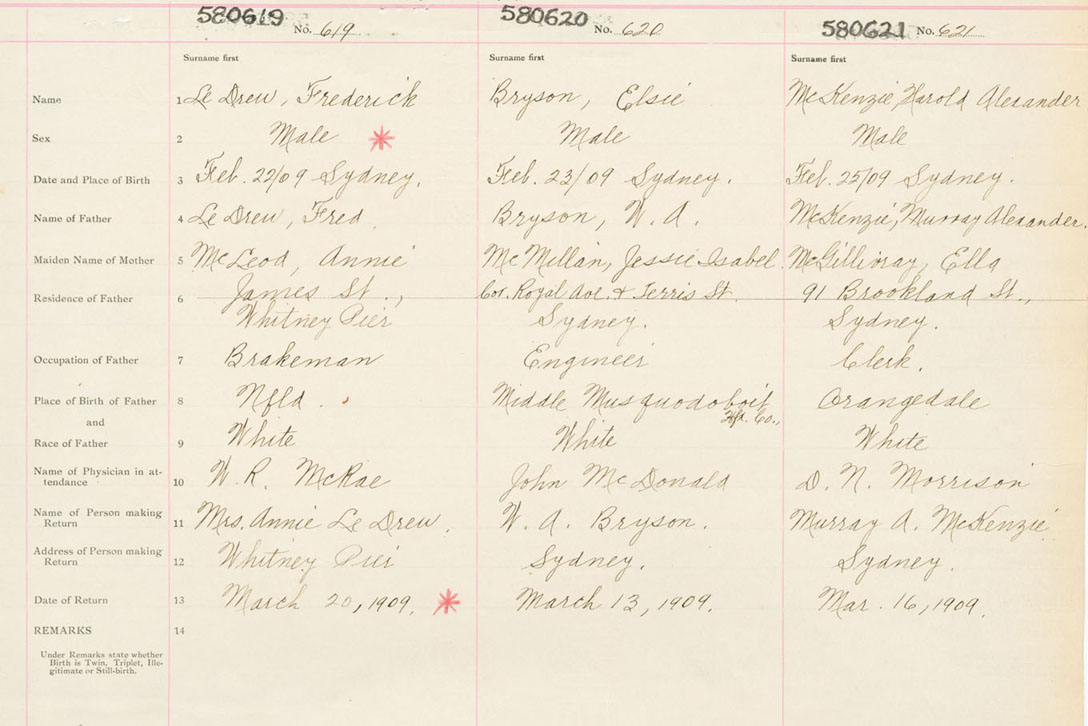 580619 No. 619 580620 No. 620 580621 No. 621
Surname first Surname first Surname first
Name 1 Le Drew, Frederick Bryson, Elsie McKenzie, Harold Alexander
Sex 2 Male * Male Male
Date and Place of Birth 3 Feb. 22/09 Sydney. Feb. 23/09 Sydney. Feb. 25/09 Sydney.
Name of Father 4 Le Drew, Fred Bryson, W. A. McKenzie, Murray Alexander.
Maiden Name of Mother 5 McLeod, Annie McMillan, Jessie Isabel McGillivray, Ella
Residence of Father 6 James St., Cor. Royal Ave. & Ferris St. 91 Brookland St.,
Whitney Pier Sydney. Sydney.
Occupation of Father 7 Brakeman Engineer Clerk.
Place of Birth of Father 8 Nfld. Middle Musquodoboit Orangedale
and Hfx. Co.,
Race of Father 9 White White White
Name of Physician in at-
tendance 10 W. R. McRae John McDonald D. N. Morrison
Name of Person making
Return 11 Mrs. Annie Le Drew. W. A. Bryson. Murray A. McKenzie
Address of Person making
Return 12 Whitney Pier Sydney. Sydney.
Date of Return 13 March 20, 1909. * March 13, 1909. Mar. 16, 1909.
REMARKS 14
Under Remarks state whether
Birth is Twin, Triplet, Ille-
gitimate or Still-birth.